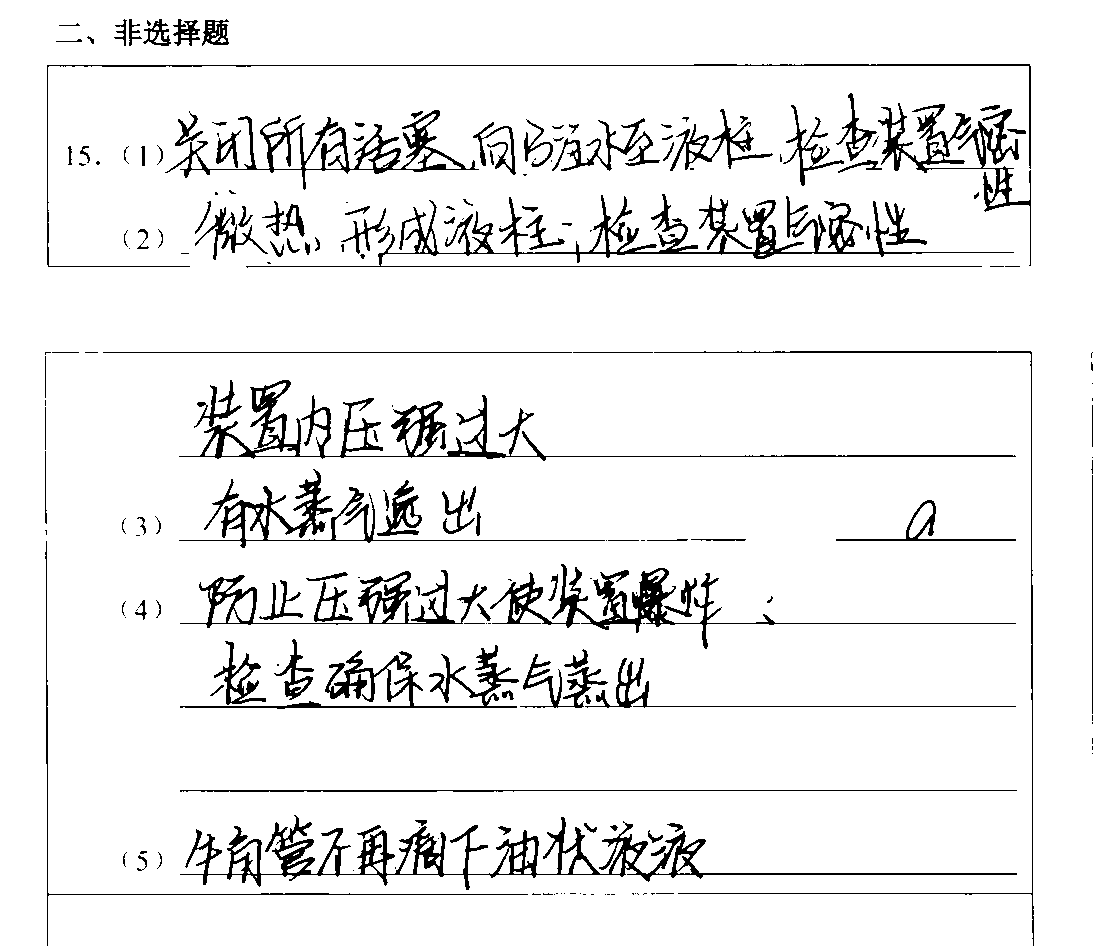 二、非选择题
15.（1）关闭所有活塞,向B注水至液柱,检查装置气密性
（2）微热,形成液柱;检查装置气密性
装置内压强过大
（3）有水蒸气逸出 a
（4）防止压强过大使装置爆炸;
检查确保水蒸气蒸出
（5）牛角管不再滴下油状液液